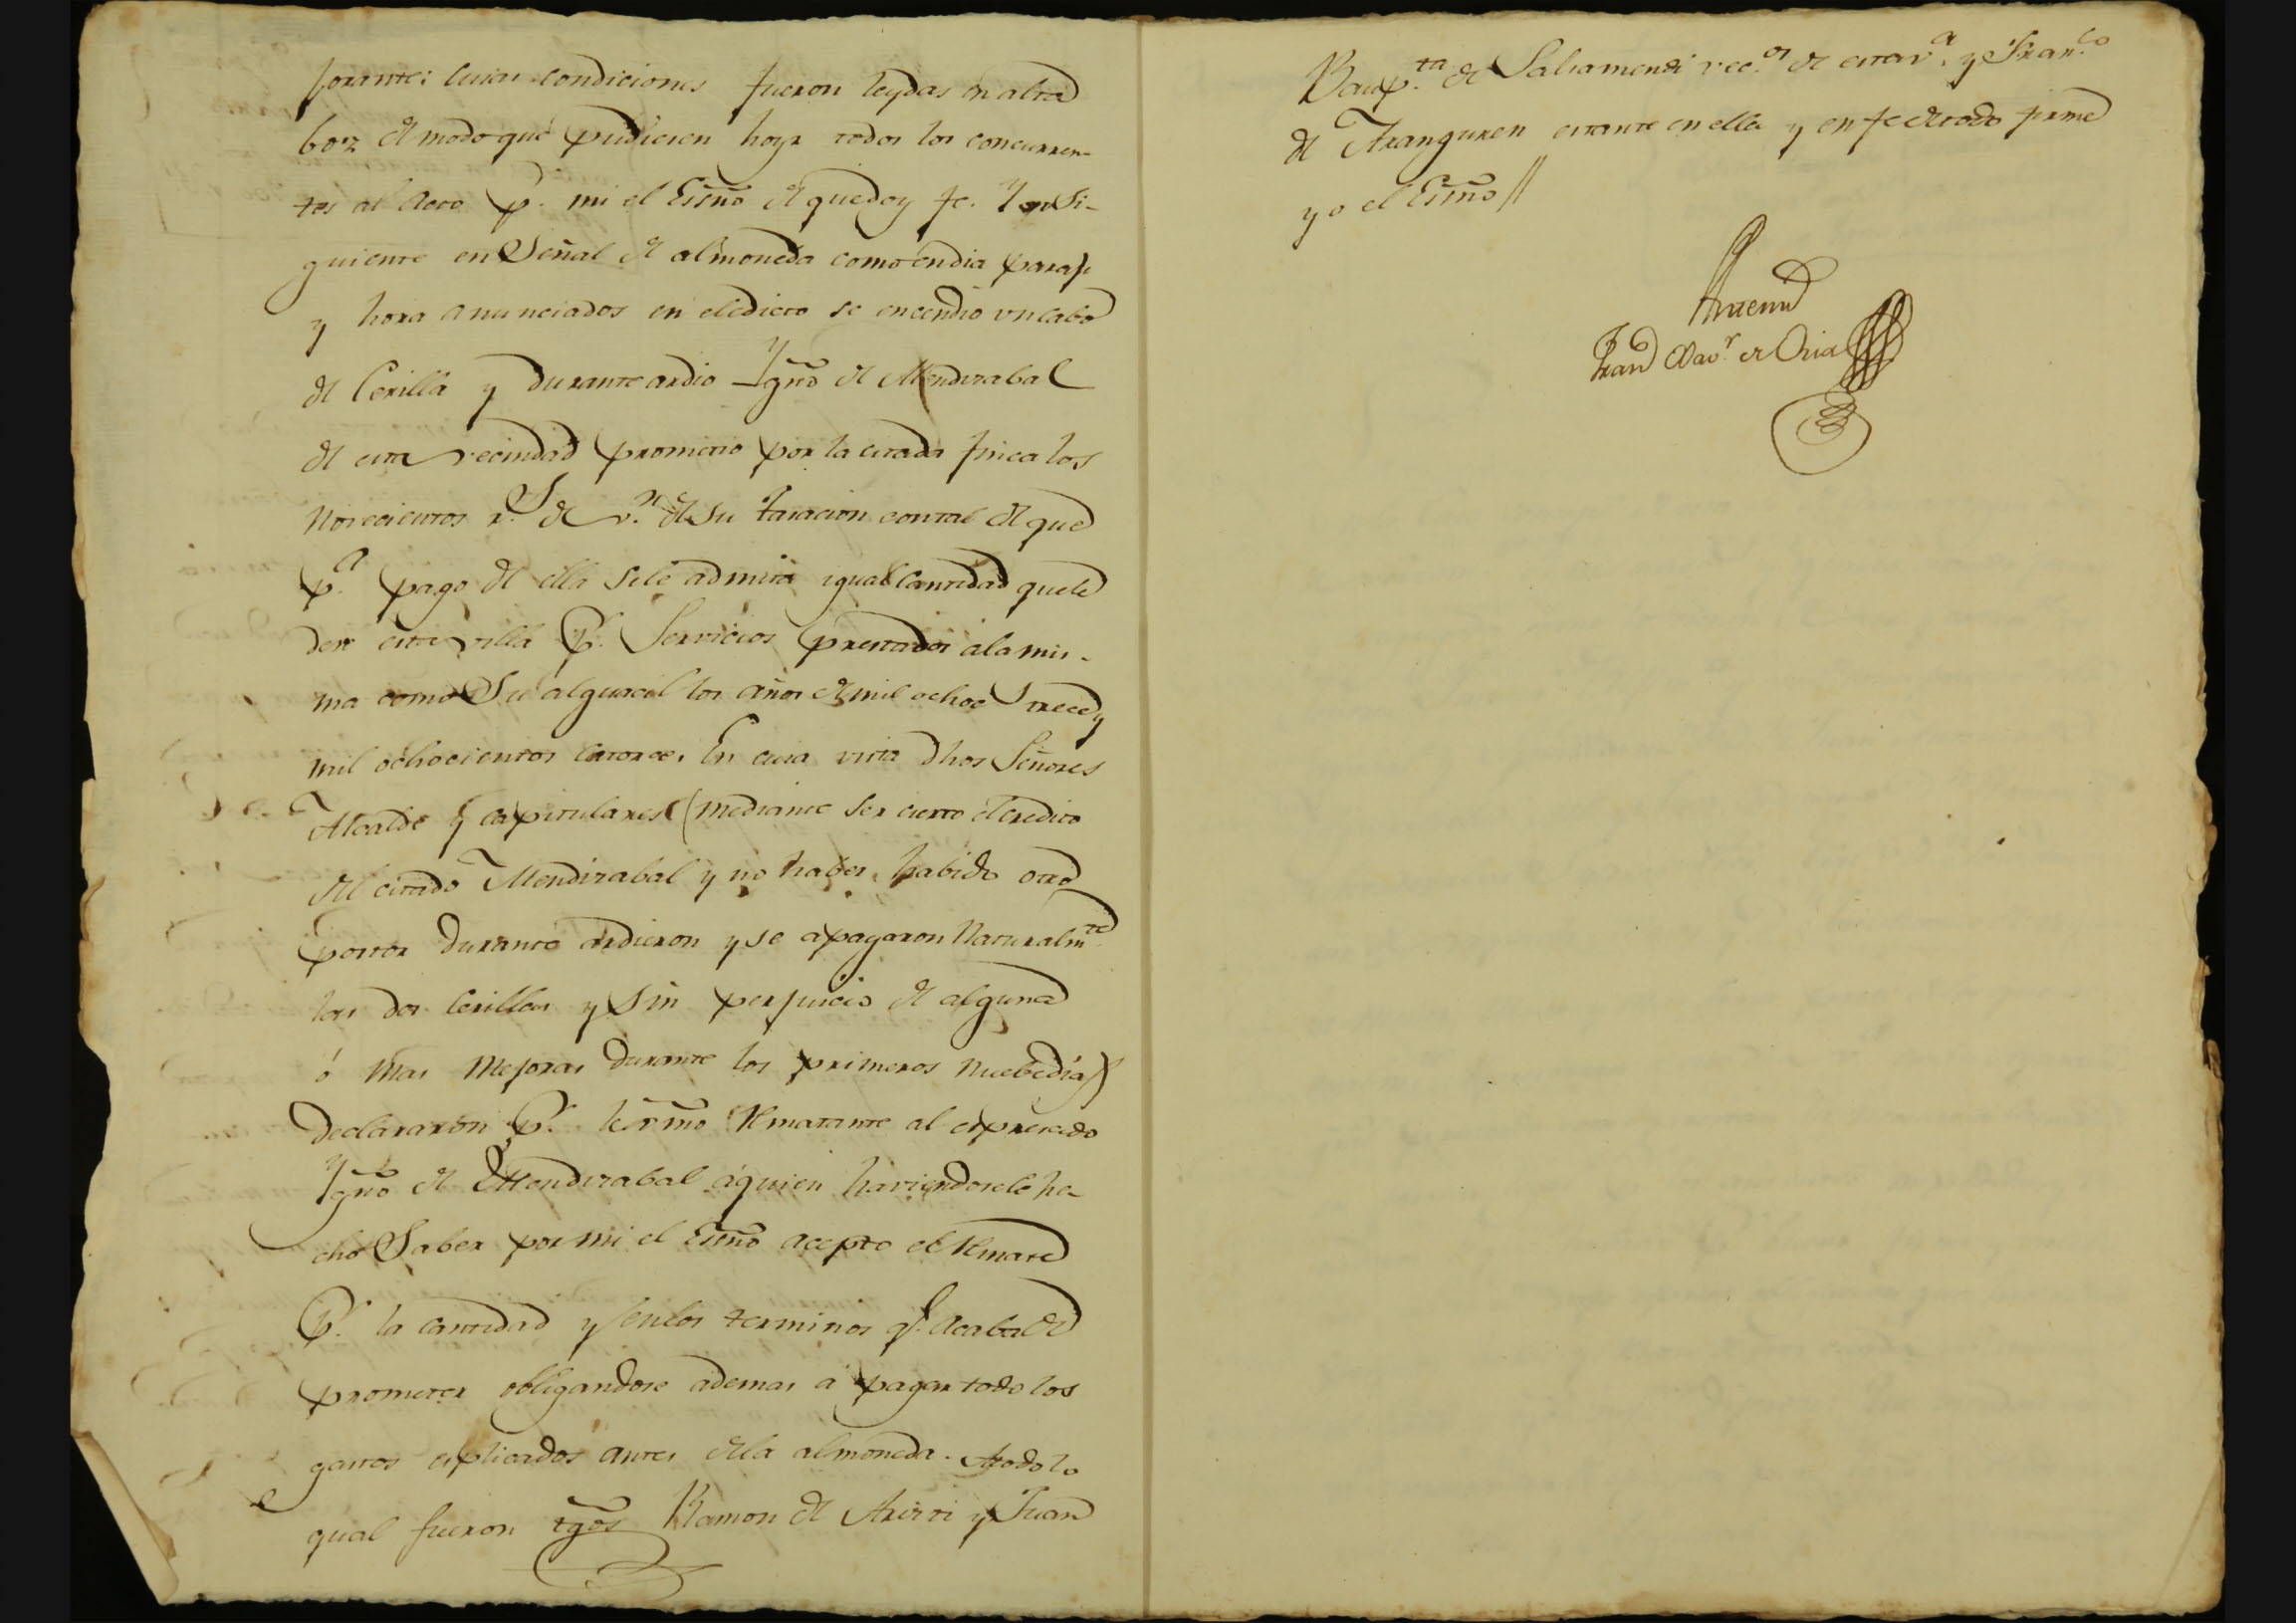 jorante: cuias condiciones fueron leydas en alta
boz de modo que pudiesen hoyr todos los concurren-
tes al Acto p.r mi el Essno de que doy fe. Y en si-
guiente en Señal de almoneda como en dia paraje
y hora anunciados en el edicto se encendio vn cabo
de Cerilla y durante ardio Ygn.o de Mendizabal
de esta vecindad prometio por la citada finca los
Novecientos r.s de v.n de su tasacion con tal de que
p.a pago de ella se le admita igual Cantidad que le
deve esta villa p.r Servicios prestados a la mis-
ma como Su alguacil los años de mil ochoc.s trece y
mil ochocientos catorce. En cuia vista dhos Señores
Alcalde y capitulares (mediante ser cierto el credito
del citado Mendizabal y no haber habido otro
postor durante ardieron y se apagaron Naturalm.te
las dos Cerillas y sin perjuicio de alguna
ó mas Mejoras durante los primeros nuebe dias)
declararon p.r lexmo Rematante al expresado
Ygn.o de Mendizabal á quien haviendosele he-
cho Saber por mi el Essno acepto el Remate
p.r la cantidad y en los terminos q.e acaba de
prometer obligandose ademas a pagar todo los
gastos esplicados antes de la almoneda. A todo lo
qual fueron tgos Ramon de Aristi y Juan
Baup.ta de Saliamendi vec.os de esta v.a y Fran.co
de Aranguren estante en ella y en fe de todo firme
yo el Essno //
Antemi
Fran.co Xav.r de Oria